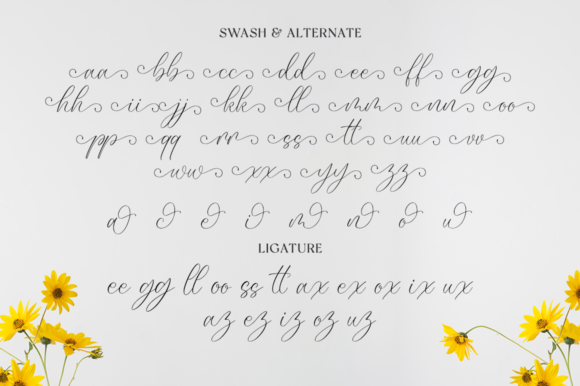 SWASH & ALTERNATE
aa bb cc dd ee ff gg
hh ii jj kk ll mm nn oo
pp qq rr ss tt uu vv
ww xx yy zz
a e i m n o u
LIGATURE
ee gg ll oo ss tt ax ex ox ix ux
az ez iz oz uz